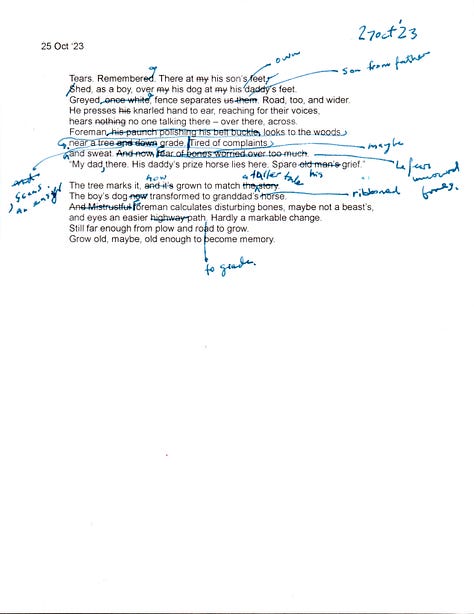 27 Oct '23
25 Oct '23
own
Tears. Remembered. There at my his son's feet,
son from father
Shed, as a boy, over my his dog at my his daddy's feet.
Greyed, once white, fence separates us them. Road, too, and wider.
He presses his knarled hand to ear, reaching for their voices,
hears nothing no one talking there – over there, across.
Foreman, his paunch polishing his belt buckle, looks to the woods
near a tree and down grade. Tired of complaints
maybe
and sweat. And now, fear of bones worried over too much.
he fears
"My dad, there. His daddy's prize horse lies here. Spare old man's grief."
how
a taller tale his
The tree marks it, and it's grown to match the story.
The boy's dog now transformed to granddad's horse.
ribboned
And Mistrustful foreman calculates disturbing bones, maybe not a beast's,
and eyes an easier highway path. Hardly a markable change.
Still far enough from plow and road to grow.
Grow old, maybe, old enough to become memory.
to grade.